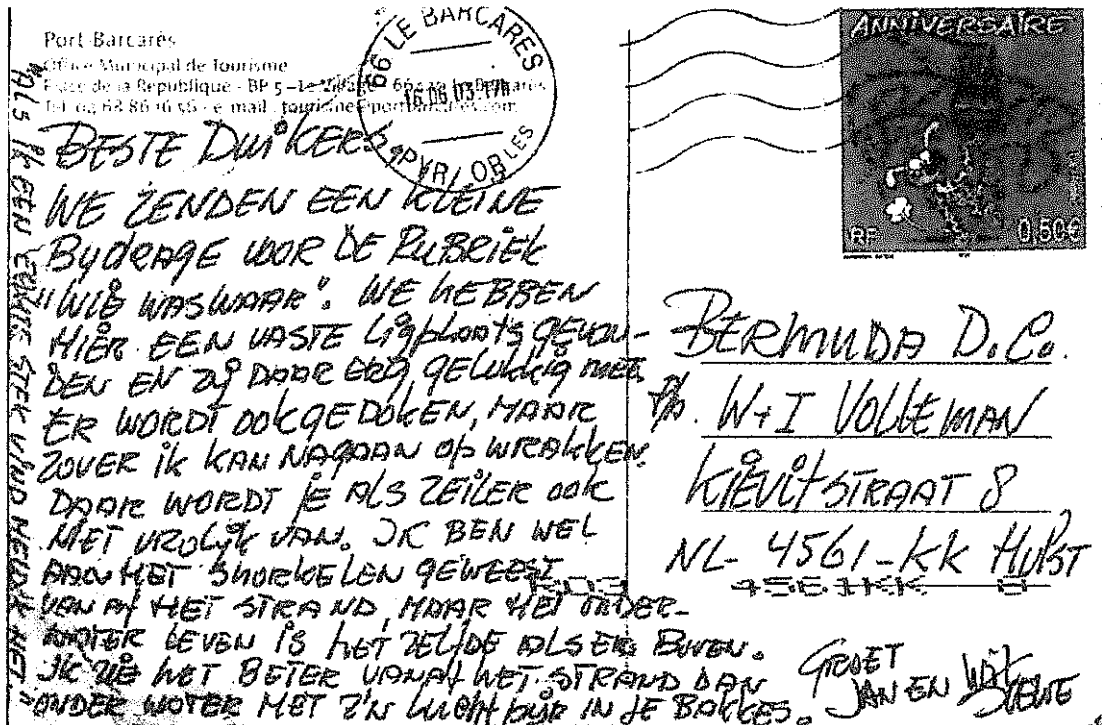 Port-Barcarès
Office Municipal de Tourisme
Place de la République - BP 5 - Le Village - 66420 Le Barcarès
Tél. 04 68 86 16 56 - e-mail : tourisme@portbarcares.com
66 LE BARCARES
16.06.03
PYR. OR LES
ANNIVERSAIRE
RF 0,50€
BESTE DUIKERS,
WE ZENDEN EEN KLEINE
BYDRAGE VOOR DE RUBRIEK
"WIE WAS WAAR". WE HEBBEN
HIER EEN VASTE LIGPLAATS GEVON-
DEN EN ZIJ DAAR ERG GELUKKIG MEE.
ER WORDT OOK GEDOKEN, MAAR
ZOVER IK KAN NAGAAN OP WRAKKEN.
DAAR WORDT JE ALS ZEILER OOK
NIET VROLIJK VAN. IK BEN WEL
AAN HET SNORKELEN GEWEEST
VANAF HET STRAND, MAAR HET ONDER-
WATER LEVEN IS HET ZELFDE ALS ER BOVEN.
IK ZIE HET BETER VANAF HET STRAND DAN
ONDER WATER MET Z'N LUCHTPIJP IN JE BAKKES.
"ALS IK EEN STEK VIND MELD IK HET."
BERMUDA D.C.
P/A. W+I VOLLEMAN
KIEVITSTRAAT 8
NL- 4561-KK HULST
4561KK 8
GROET
JAN EN